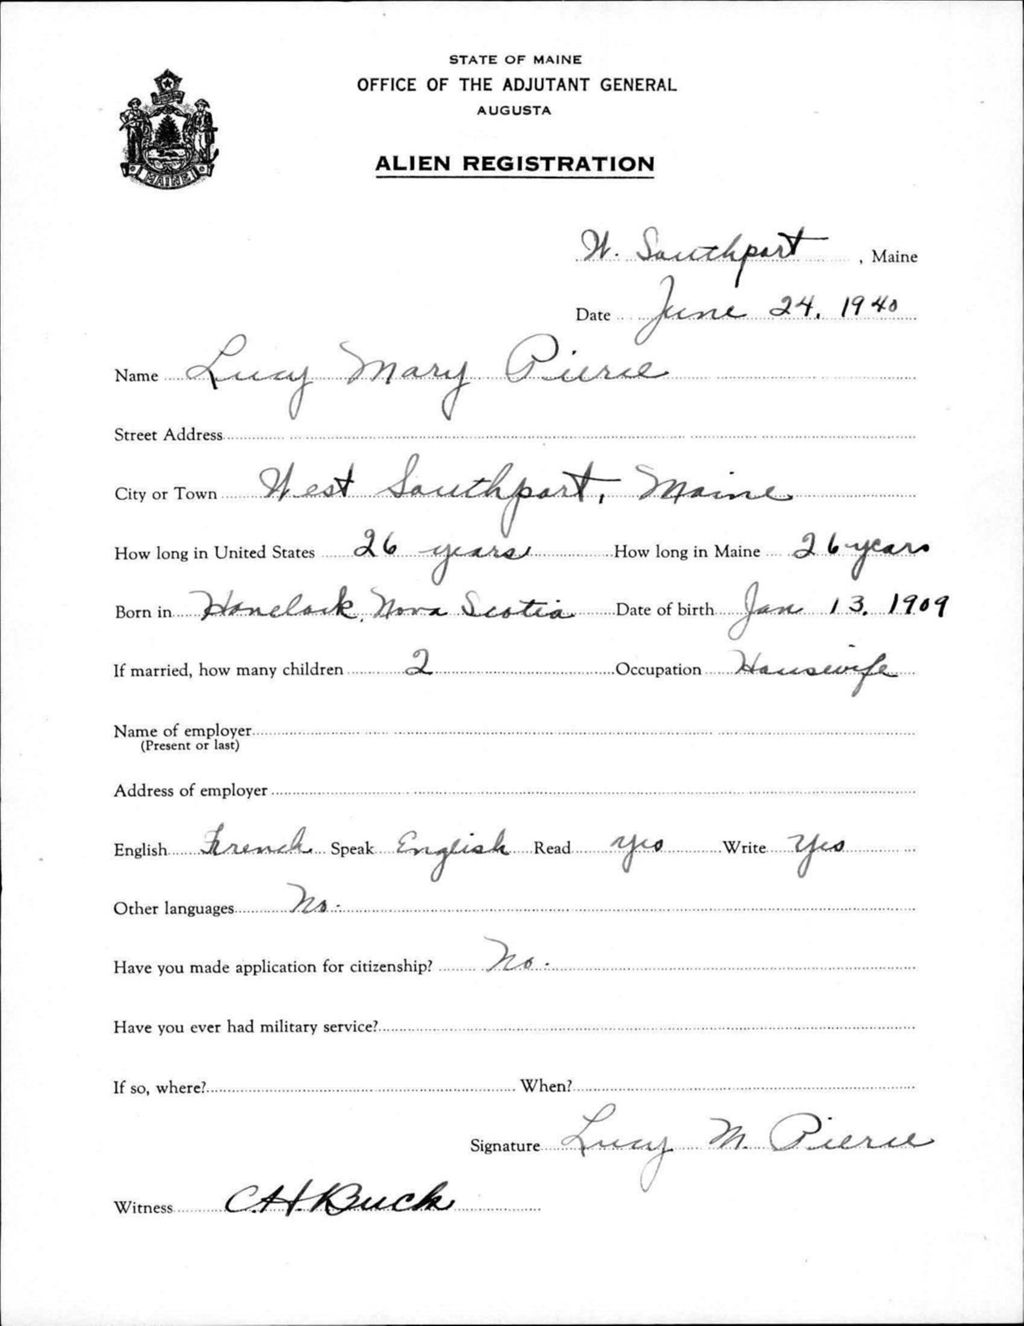 STATE OF MAINE
OFFICE OF THE ADJUTANT GENERAL
AUGUSTA
ALIEN REGISTRATION
MAINE
W. Southport, Maine
Date June 24, 1940
Name Lucy Mary Pierce
Street Address
City or Town West Southport, Maine
How long in United States 26 years How long in Maine 26 years
Born in Nova Scotia Date of birth Jan 13, 1909
If married, how many children 2 Occupation Housewife
Name of employer
(Present or last)
Address of employer
English French Speak English Read yes Write Yes
Other languages No.
Have you made application for citizenship? No.
Have you ever had military service?
If so, where? When?
Signature Lucy M. Pierce
Witness C.H. Buck